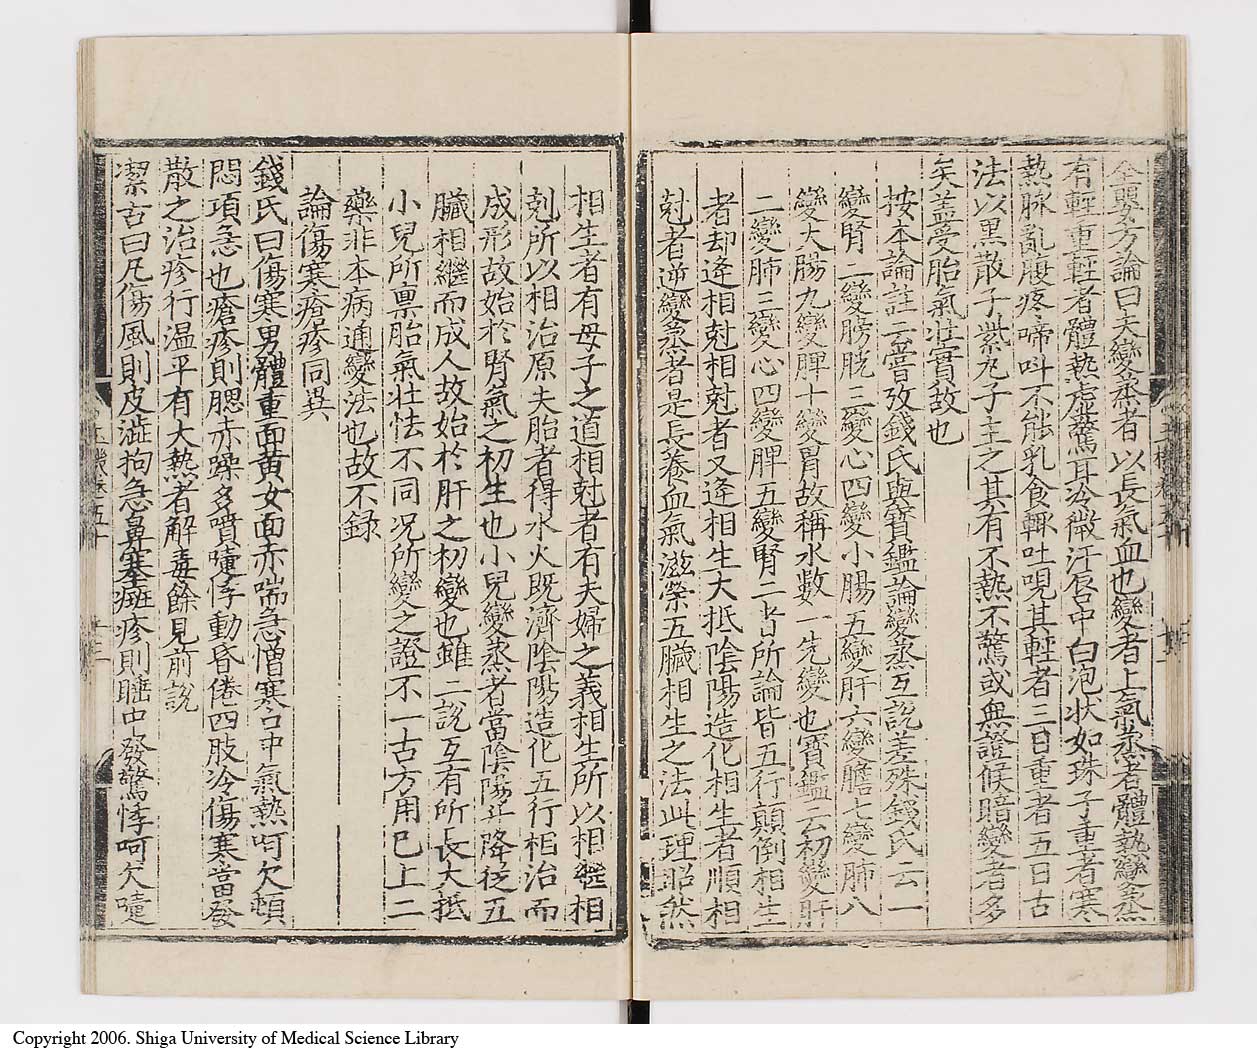 全嬰方論曰夫變蒸者以長氣血也變者上氣蒸者體熱變蒸
有輕重輕者體熱虛驚耳冷微汗唇中白泡状如珠子重者寒
熱脉亂腹疼啼叫不能乳食輙吐哯其輕者三日重者五日古
法以黒散子紫丸子主之其有不熱不驚或無證候暗變者多
矣盖受胎氣壯實故也
按本論註云嘗攷錢氏與寶鑑論變蒸互說差殊錢氏云一
變腎二變膀胱三變心四變小腸五變肝六變膽七變肺八
變大腸九變脾十變胃故稱水數一先變也寶鑑云初變肝
二變肺三變心四變脾五變腎二者所論皆五行顛倒相生
者却逢相尅相尅者又逢相生大抵陰陽造化相生者順相
尅者逆變蒸者是長養血氣滋榮五臓相生之法此理昭然
相生者有母子之道相尅者有夫婦之義相生所以相繼相
剋所以相治原夫胎者得水火既濟陰陽造化五行相治而
成形故始於腎氣之初生也小兒變蒸者當陰陽升降從五
臓相繼而成人故始於肝之初變也雖二說互有所長大抵
小兒所禀胎氣壯怯不同况所變之證不一古方用巳上二
藥非本病通變法也故不録
論傷寒瘡疹同異
錢氏曰傷寒男體重面黃女面赤喘急憎寒口中氣熱呵欠頓
悶項急也瘡疹則腮赤躁多噴嚏悸動昏倦四肢冷傷寒當發
散之治疹行温平有大熱者解毒餘見前說
潔古曰凡傷風則皮澁拘急鼻塞癍疹則睡中發驚悸呵欠嚏